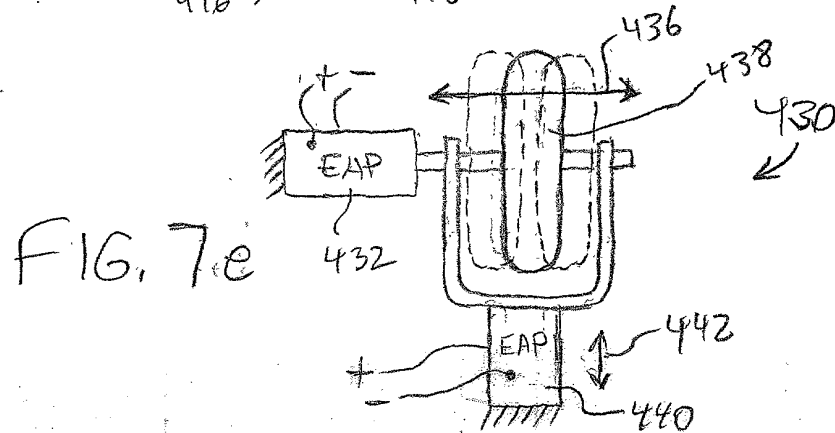 436
438
430
+ -
EAP
432
FIG. 7e
EAP
442
+
-
440